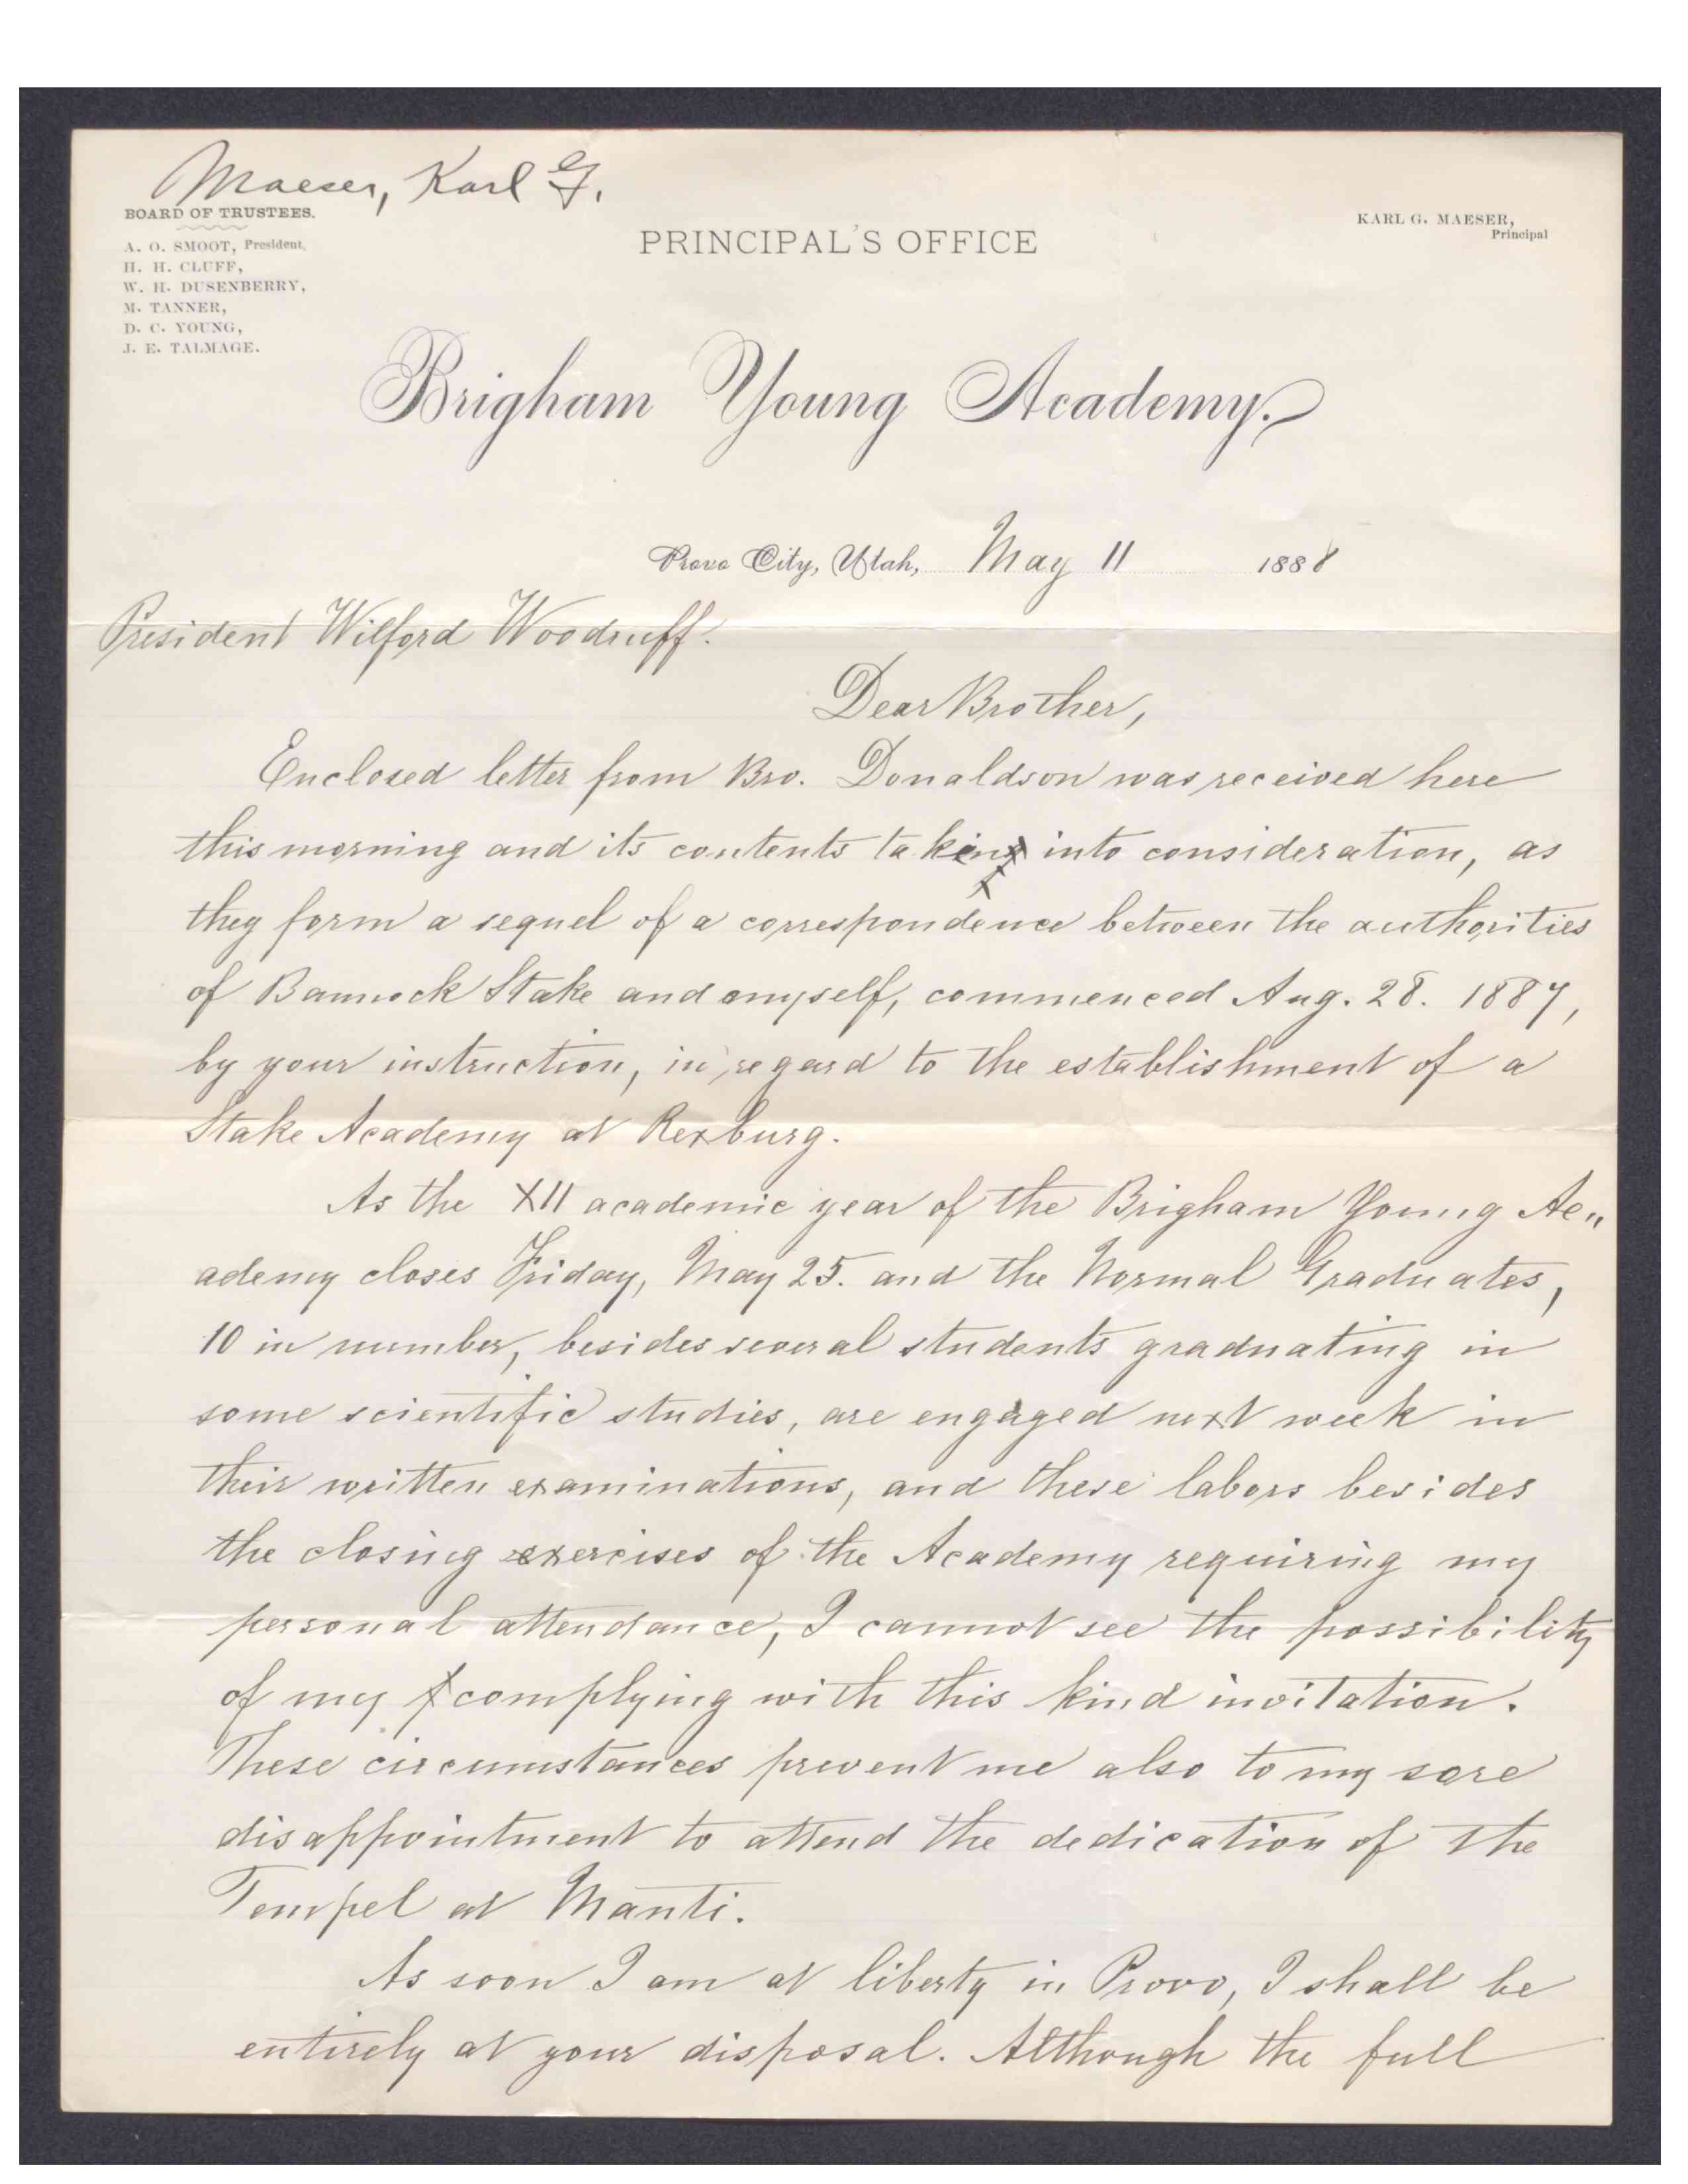 Maeser, Karl G.
BOARD OF TRUSTEES.
A. O. SMOOT, President,
H. H. CLUFF,
W. H. DUSENBERRY,
M. TANNER,
D. C. YOUNG,
J. E. TALMAGE.
PRINCIPAL'S OFFICE
KARL G. MAESER,
Principal
Brigham Young Academy.
Provo City, Utah, May 11 1888
President Wilford Woodruff.
Dear Brother,
Enclosed letter from Bro. Donaldson was received here
this morning and its contents taken into consideration, as
they form a sequel of a correspondence between the authorities
of Bannock Stake and myself, commenced Aug. 28. 1887,
by your instruction, in regard to the establishment of a
Stake Academy at Rexburg.
As the XII academic year of the Brigham Young Ac„
ademy closes Friday, May 25. and the Normal Graduates,
10 in number, besides several students graduating in
some scientific studies, are engaged next week in
their written examinations, and these labors besides
the closing exercises of the Academy requiring my
personal attendance, I cannot see the possibility
of my complying with this kind invitation.
These circumstances prevent me also to my sore
disappointment to attend the dedication of the
Tempel at Manti.
As soon I am at liberty in Provo, I shall be
entirely at your disposal. Although the full